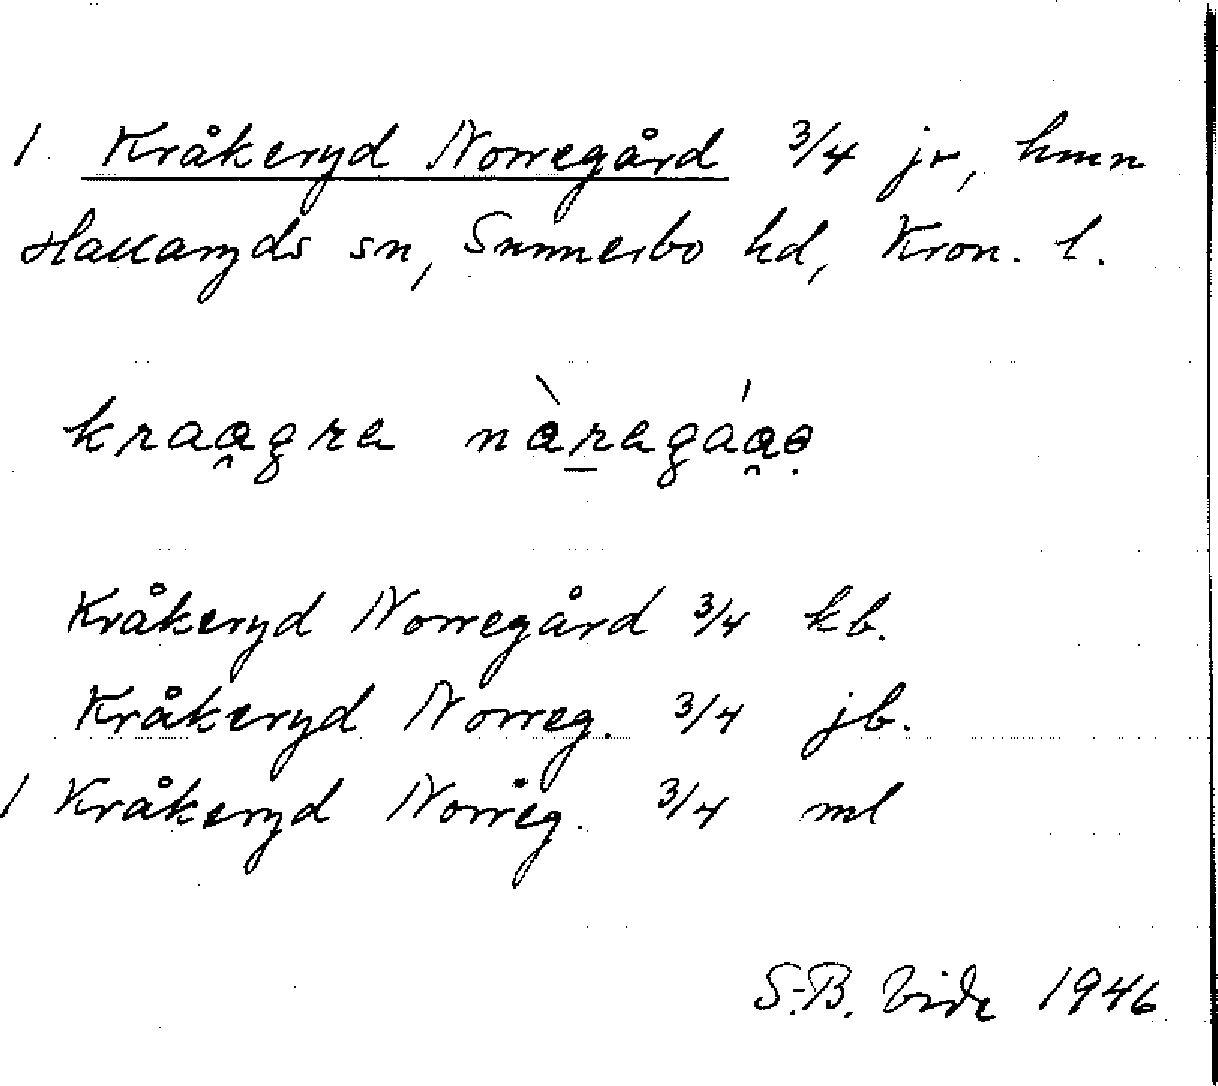 1 Kråkeryd Norregård 3/4 jr, hmn
Hallaryds sn, Sunnerbo hd, Kron. l.
Kråkeryd Norregård 3/4 kb.
Kråkeryd Norreg. 3/4 jb.
1 Kråkeryd Norreg. 3/4 ml
S.-B. Vide 1946